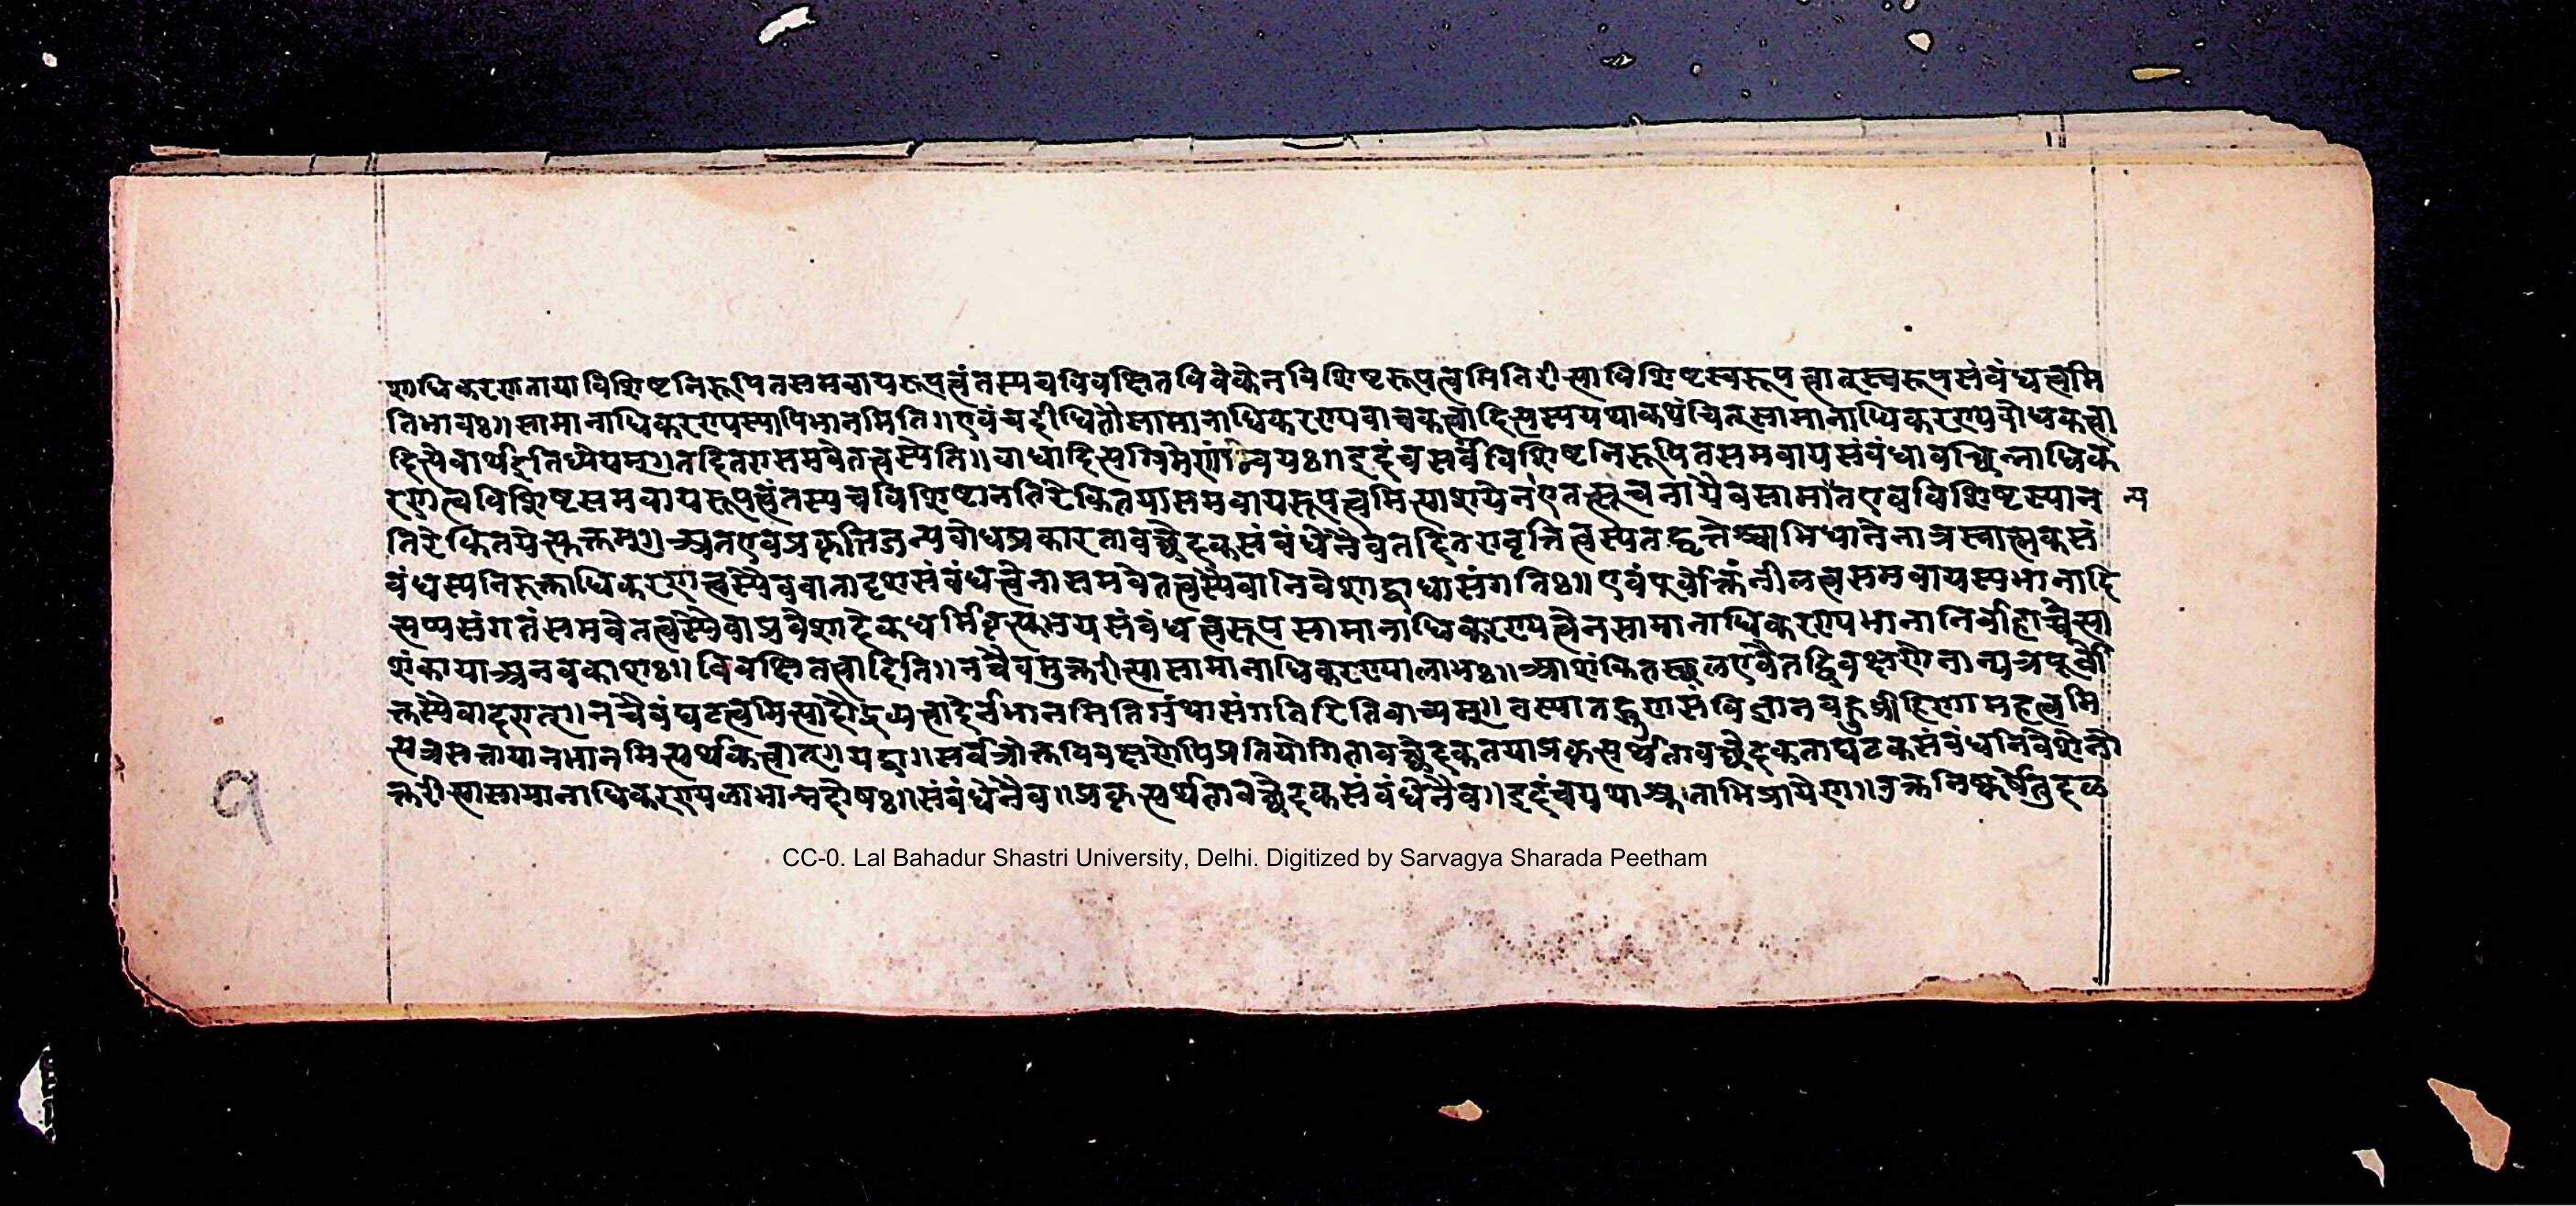 णाधिकरणताया विशिष्टनिरूपितसमवायरूपत्वं तस्य च विवक्षितविवेकेन विशिष्टरूपत्वमिति रीत्या विशिष्टस्वरूपत्वात् स्वरूपसंबंधत्वमि
तिभावः॥ सामानाधिकरण्यस्यापि भानमिति॥ एवं च दीधितौ सामानाधिकरण्यवाचकत्वादित्यस्य यथाकथंचित्सामानाधिकरण्यबोधकत्वा
दित्येवार्थ इति ध्येयम्॥ तदितरासमवेतत्वस्येति॥ बाधादित्यग्रिमेणान्वयः॥ इदं च सर्वं विशिष्टनिरूपितसमवायसंबंधावच्छिन्नाधिक
रणत्वविशिष्टसमवायरूपत्वं तस्य च विशिष्टानतिरेकितया समवायरूपत्वमित्याशयेन एतत्सूचनायैव सामान्यत एव विशिष्टस्यान
न्य
तिरेकितयेत्युक्तम्॥ अतएव प्रकृतिजन्यबोधप्रकारतावच्छेदकसंबंधेनैव तदितरावृत्तित्वस्य तद्वृत्तेश्चाभिधानेनात्र स्वात्मकसं
बंधस्य निरुक्ताधिकरणत्वस्यैव वा तादृशसंबंधत्वेनासमवेतत्वस्यैवानिवेशाद्बाधासंगतिः॥ एवं पूर्वोक्तिं नीलत्वसमवायस्य भानादि
त्यप्यसंगतं समवेतत्वस्यैवाप्रवेशादेकधर्मिवृत्त्युभयसंबंधत्वरूपसामानाधिकरण्यत्वेन सामानाधिकरण्यभानानिर्वाहाच्चेत्या
शंकाया अनवकाशः॥ विवक्षितत्वादिति॥ नचैवमुक्तरीत्या सामानाधिकरण्यालाभः॥ आशंकितस्थल एवैतद्विवक्षणेनान्यत्र पूर्वो
क्तस्यैवादरात्॥ नचैवं घटत्वमित्यादौ द्रव्यत्वादेर्नभानमिति ग्रंथासंगतिरिति वाच्यम्॥ तस्यातद्गुणसंविज्ञानबहुव्रीहिणा महत्वमि
त्यत्र सत्ताया नभानमित्यर्थकत्वात्॥ यद्वा॥ सर्वत्रोक्तविवक्षणेपि प्रतियोगितावच्छेदकतया प्रकृत्यर्थतावच्छेदकताघटकसंबंधनिवेशेनो
क्तरीत्या सामानाधिकरण्यलाभान्नदोषः॥ संबंधेनैव॥ प्रकृत्यर्थतावच्छेदकसंबंधेनैव॥ इदं च यथाश्रुताभिप्रायेण॥ उक्तनिष्कर्षेतु दल
१
CC-0. Lal Bahadur Shastri University, Delhi. Digitized by Sarvagya Sharada Peetham